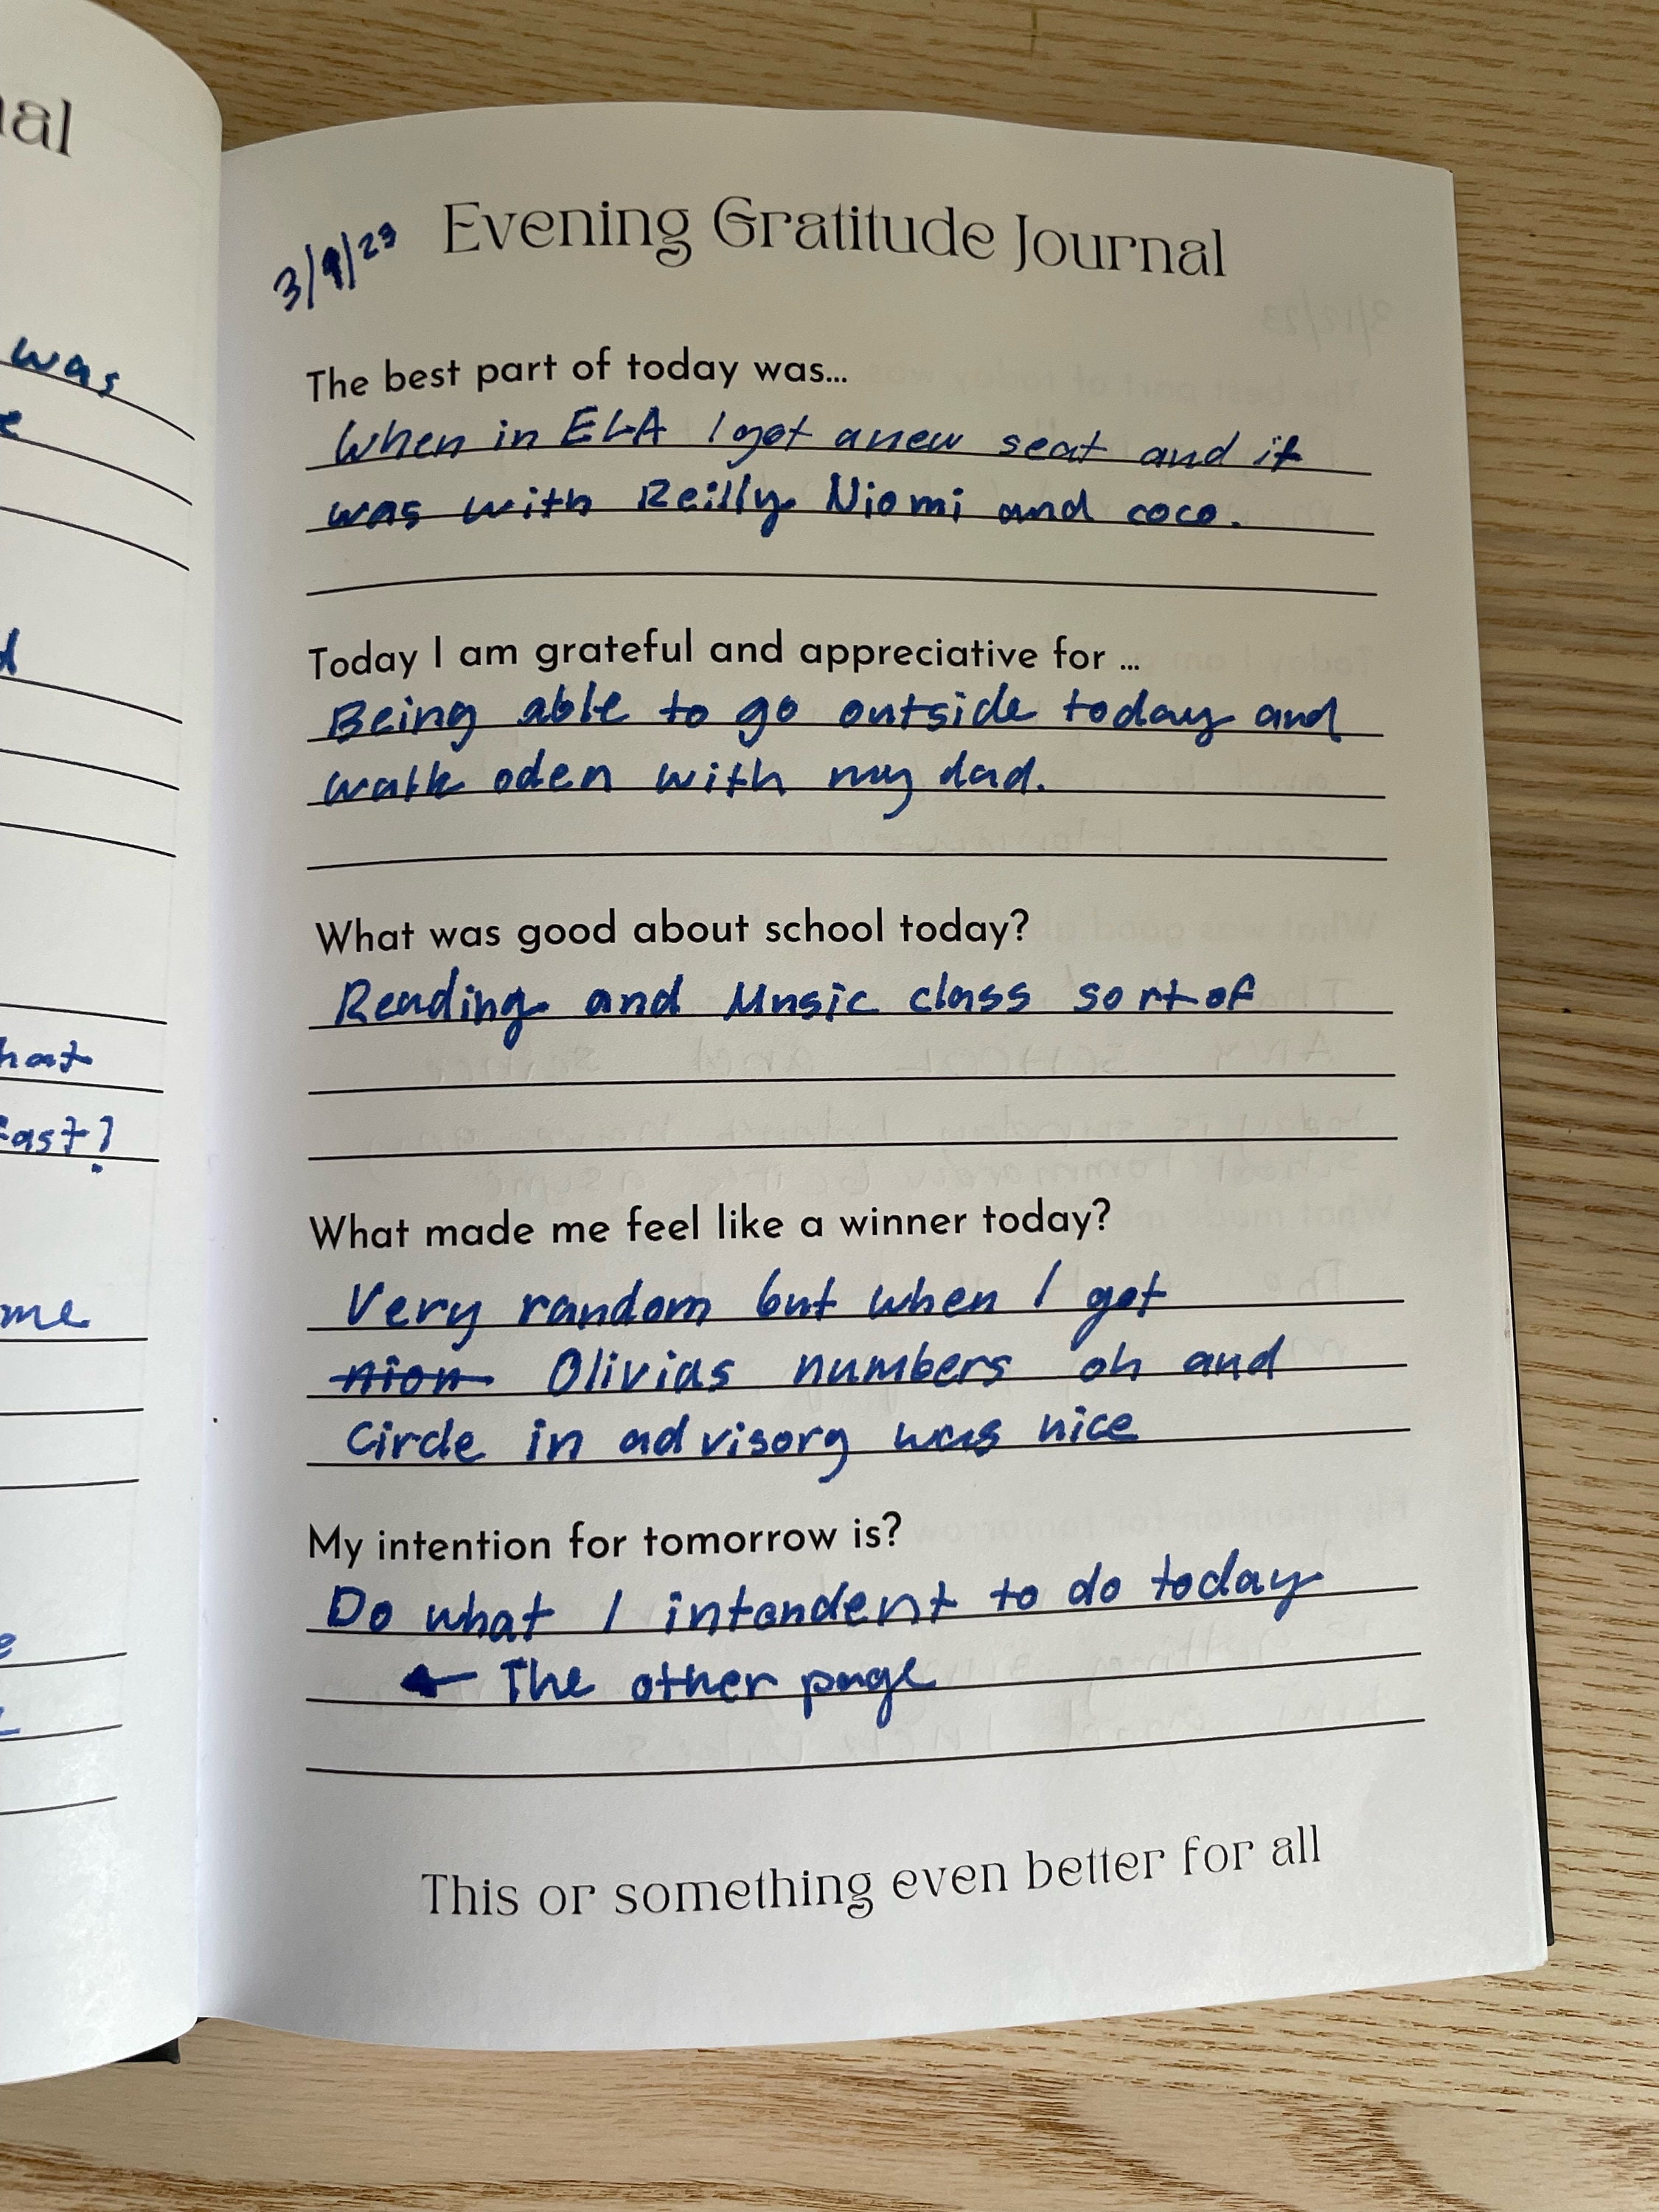 nal
was
e
d
hat
fast?
me
e
Evening Gratitude Journal
3/9/23
The best part of today was...
When in ELA I got a new seat and it
was with Reilly Niomi and coco.
Today I am grateful and appreciative for ...
Being able to go outside today and
walk oden with my dad.
What was good about school today?
Reading and Music class sort of
What made me feel like a winner today?
Very random but when I got
nion Olivias numbers oh and
Circle in advisory was nice
My intention for tomorrow is?
Do what I intandent to do today
← The other page
This or something even better for all